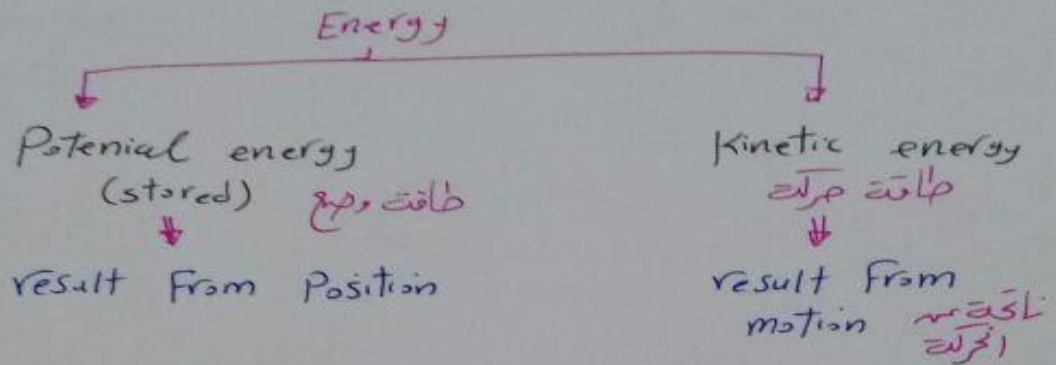 Energy
Potenial energy
(stored) طاقة وضع
result From Position
Kinetic energy
طاقة حركة
result From
motion ناتجة من
الحركة